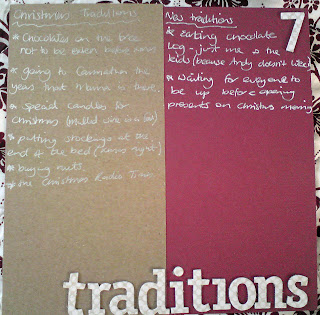 Christmas Traditions
* Chocolates on the tree
not to be eaten before xmas
* going to Carmarthen the
years that Nana is there.
* special candles for
Christmas (mulled wine is a fav)
* putting stockings at the
end of the bed (xmas night)
* buying nuts.
* the Christmas Radio Times
New traditions
* eating chocolate
log - just me & the
kids (because Andy doesn't like it)
* waiting for everyone to
be up before opening
presents on Christmas morning
7
traditions